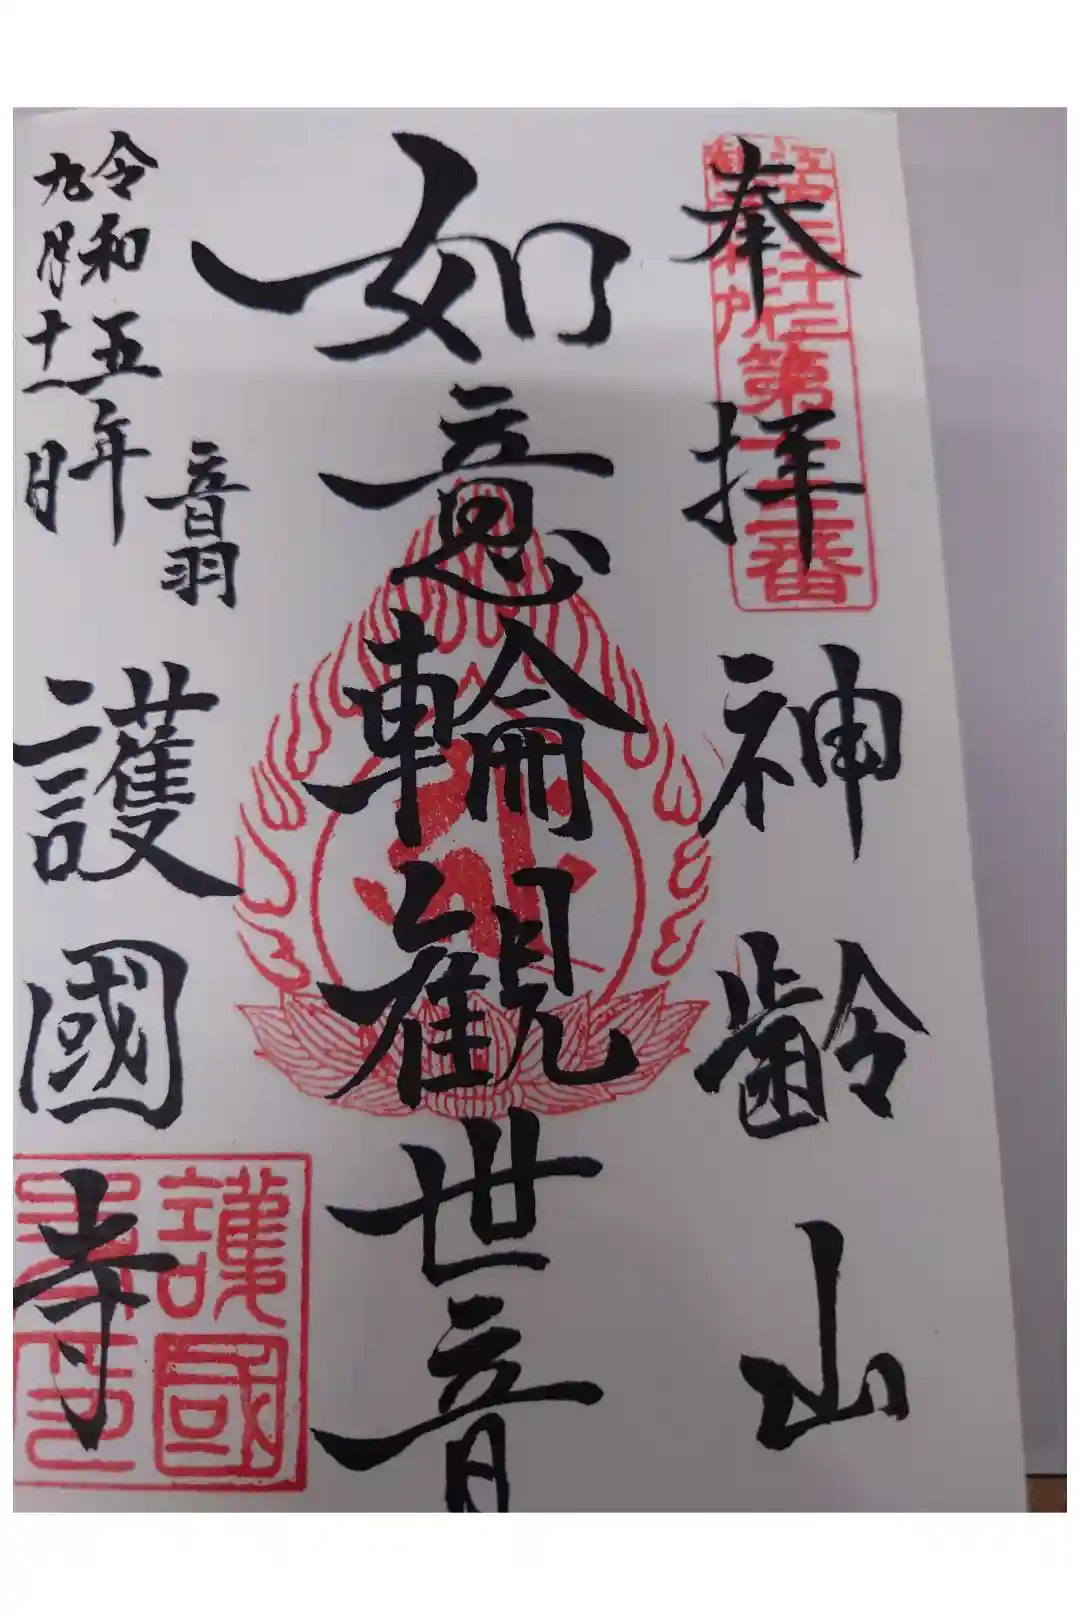 江戸三十三
観音札所
第十三番
奉拝 神齢山
如意輪観世音
音羽 護國寺
令和五年
九月十一日
護國
寺印